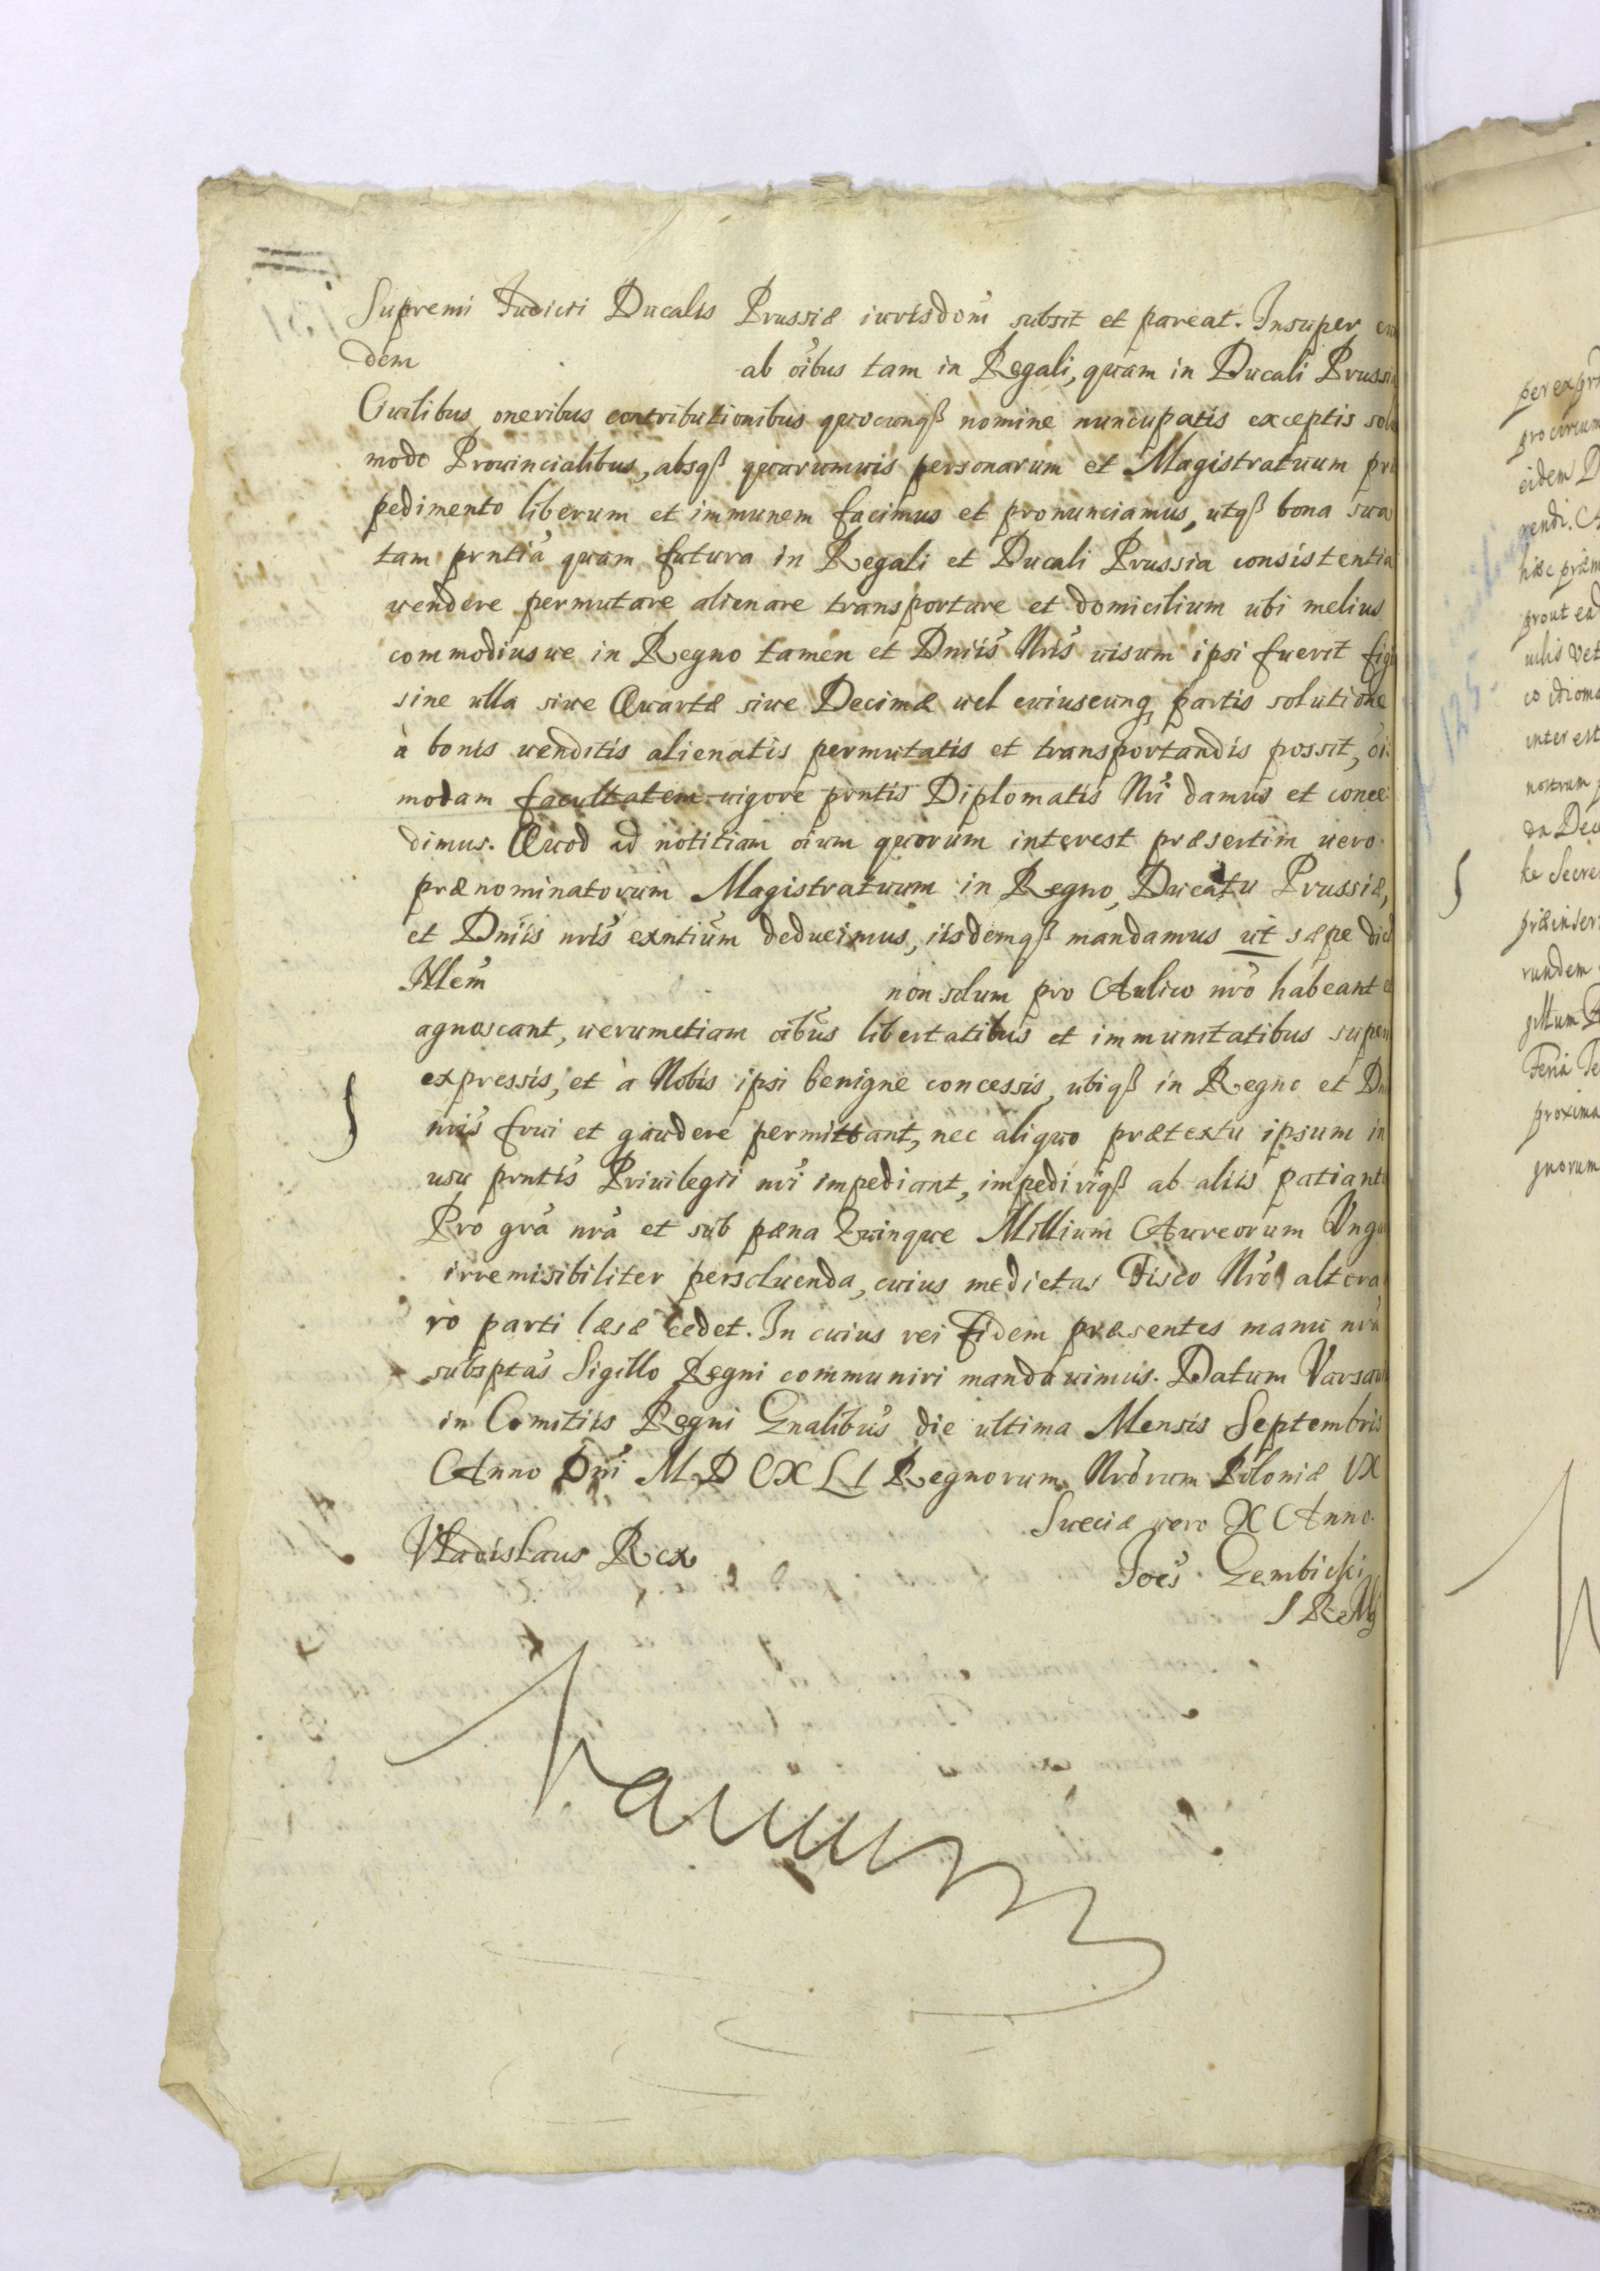 Supremi Iudicii Ducalis Prussiæ iurisdom̃ subsit et pareat. Insuper
dem ab oĩbus tam in Regali, quam in Ducali Prussi
Ciuilibus oneribus contributionibus quocunqꝫ nomine nuncupatis exceptis sol
modo Prouincialibus, absqꝫ quarumuis personarum et Magistratuum
pedimento liberum et immunem facimus et pronunciamus, utqꝫ bona sua
tam prntia quam futura in Regali et Ducali Prussia consistentia
uendere permutare alienare transportare et domicilium ubi melius
commodiusue in Regno tamen et Dnĩis Nrĩs uisum ipsi fuerit fig
sine ulla siue Quartæ siue Decimæ uel cuiuscunq, partis solutione
à bonis uenditis alienatis permutatis et transportandis possit,
modam facultatem uigore prntis Diplomatis Nrĩ damus et conce
dimus. Quod ad notitiam oium quorum interest præsertim uero
prænominatorum Magistratuum in Regno, Ducatu Prussiæ,
et Dnĩis nrĩs exntium deducimus, iisdemqꝫ mandamus ut sæpe dict
Illem̃ non solum pro Aulico nrõ habeant
agnoscant, uerumetiam oĩbus libertatibus et immunitatibus
expressis, et à Nobis ipsi benigne concessis, ubiqꝫ in Regno et
nrĩs frui et gaudere permittant, nec aliquo prætextu ipsum in
usu prntis Priuilegii nrĩ impediant, impediriqꝫ ab aliis patiant
Pro grã nrã et sub pæna Quinque Millium Aureorum Vnga
irremisibiliter persoluenda, cuius medietas Fisco Nrõ altera
ro parti læsæ cedet. In cuius rei Fidem præsentes manu nrã
subsptas Sigillo Regni communiri mandauimus. Datum Varsau
in Comitiis Regni Gnalibus die ultima Mensis Septembris
Anno Dnĩ MDCXLI Regnorum Nrõrum Poloniæ IX
Sueciæ uero X Anno.
Vladislaus Rex
Joẽs Gembicki